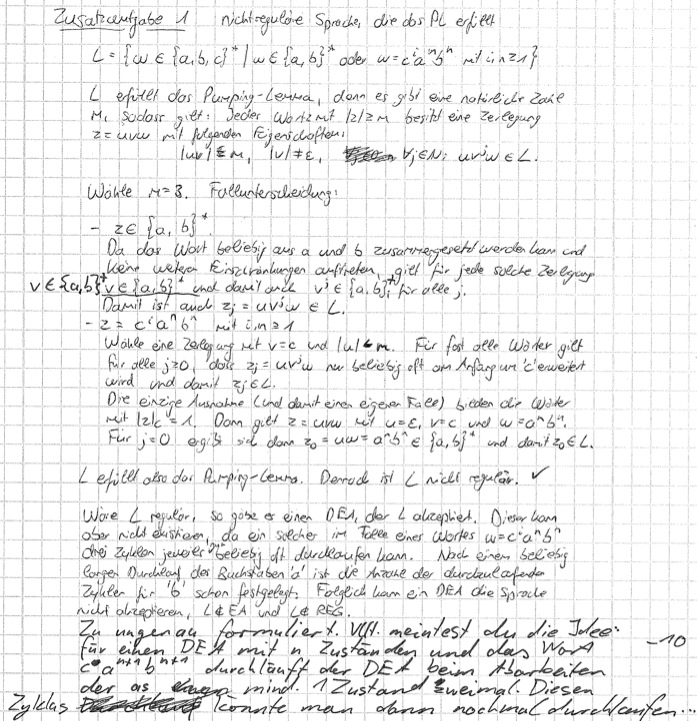 Zusatzaufgabe 1 nichtreguläre Sprache, die das PL erfüllt
L = {w ∈ {a,b,c}* | w ∈ {a,b}* oder w = cⁱaⁿbⁿ mit i,n ≥ 1}
L erfüllt das Pumping-Lemma, denn es gibt eine natürliche Zahl
m, sodass gilt: Jedes Wort z mit |z| ≥ m besitzt eine Zerlegung
z = uvw mit folgenden Eigenschaften:
|uv| ≤ m, |v| ≠ ε, ∀j∈N: uvʲw ∈ L.
Wähle m = 3. Fallunterscheidung:
- z ∈ {a, b}*.
Da das Wort beliebig aus a und b zusammengesetzt werden kann und
keine weiteren Einschränkungen auftreten, gilt für jede solche Zerlegung
v ∈ {a,b}⁺ v ∈ {a,b}* und damit auch vʲ ∈ {a,b}* für alle j.
Damit ist auch zj = uvʲw ∈ L.
- z = cⁱaⁿbⁿ mit i,n ≥ 1
Wähle eine Zerlegung mit v = c und |u| < m. Für fast alle Wörter gilt
für alle j ≥ 0, dass zj = uvʲw nur beliebig oft am Anfang um 'c' erweitert
wird und damit zj ∈ L.
Die einzige Ausnahme (und damit einen eigenen Fall) bilden die Wörter
mit |z|c = 1. Dann gilt z = uvw mit u = ε, v = c und w = aⁿbⁿ.
Für j = 0 ergibt sich dann z₀ = uw = aⁿbⁿ ∈ {a,b}* und damit z₀ ∈ L.
L erfüllt also das Pumping-Lemma. Dennoch ist L nicht regulär. ✓
Wäre L regulär, so gäbe es einen DEA, der L akzeptiert. Dieser kann
aber nicht existieren, da ein solcher im Falle eines Wortes w = cⁱaⁿbⁿ
drei Zyklen jeweils beliebig oft durchlaufen kann. Nach einem beliebig
langen Durchlauf des Buchstaben 'a' ist die Anzahl der durchzulaufenden
Zyklen für 'b' schon festgelegt. Folglich kann ein DEA die Sprache
nicht akzeptieren, L ∉ EA und L ∉ REG.
Zu ungenau formuliert. Vllt. meintest du die Idee: -10
für einen DEA mit n Zuständen und das Wort
c aⁿ⁺¹bⁿ⁺¹ durchläuft der DEA beim Abarbeiten
der as mind. 1 Zustand zweimal. Diesen
Zyklas könnte man dann nochmal durchlaufen...